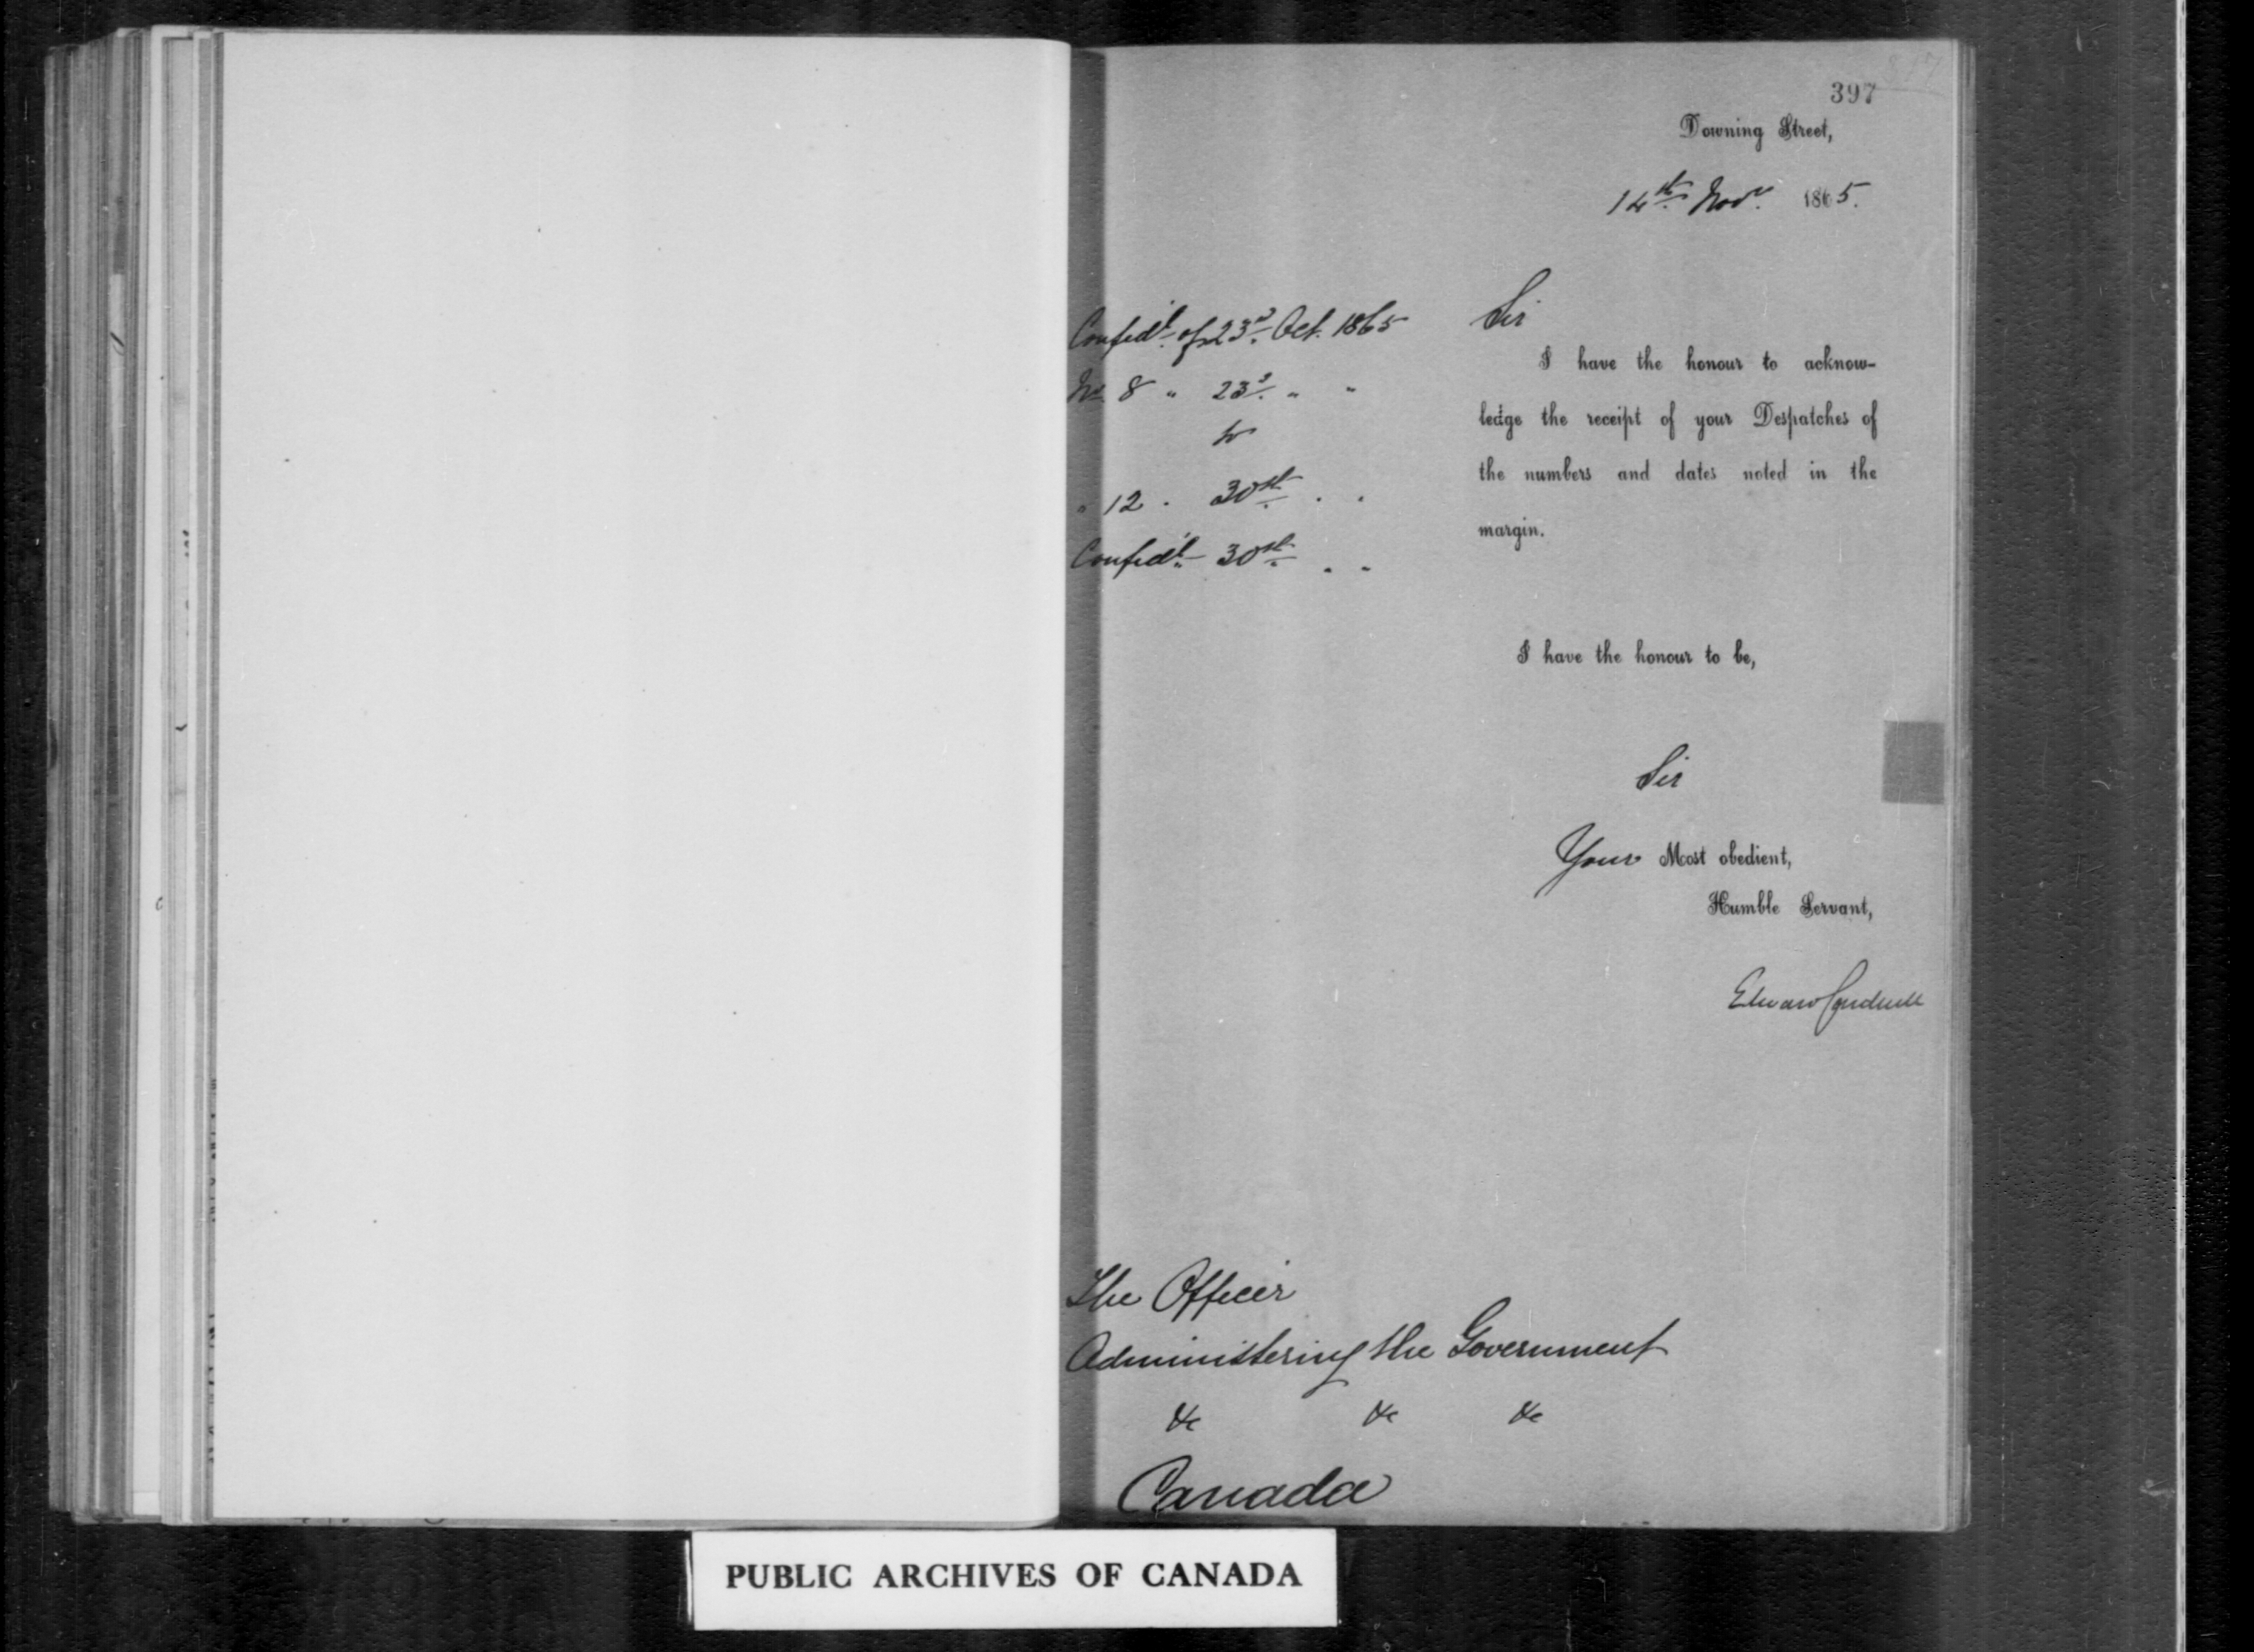 397
Downing Street,
14th Novr. 1865.
Confidl. of 23d. Oct. 1865
Sir
I have the honour to acknow-
No. 8 " 23d. " "
ledge the receipt of your Despatches of
to
the numbers and dates noted in the
" 12 . 30th . .
margin.
Confidl. 30th " "
I have the honour to be,
Sir
Your Most obedient,
Humble Servant,
Edward Cardwell
The Officer
Administering the Government
&c &c &c
Canada
PUBLIC ARCHIVES OF CANADA